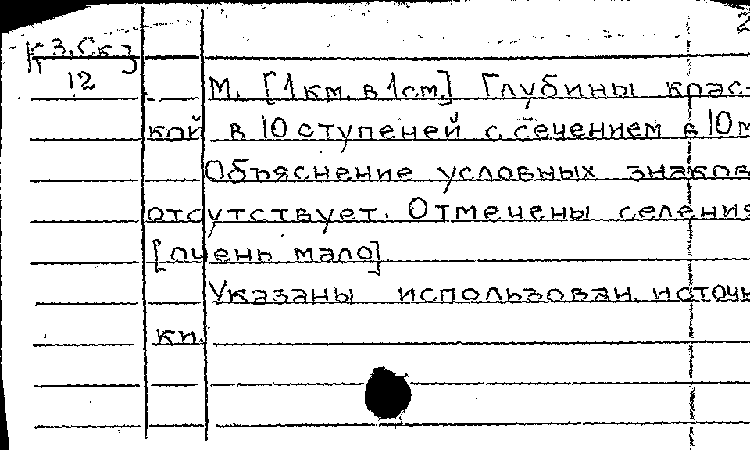 2
К3.Ск3
12
М. [1км. в 1см.] Глубины крас-
кой в 10 ступеней с сечением в 10м
Объяснение условных знаков
отсутствует. Отмечены селения
[очень мало]
Указаны использован. источн
ки.